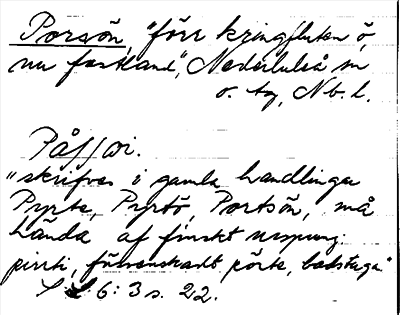 Porsön, "förr kringfluten ö,
nu fastland", Nederluleå sn
o. tg, Nb. l.
"skrifves i gamla handlingar
Pyrte, Pyrtö, Portsön, må
hända af finskt ursprung:
pirtti, försvenskadt pörte, badstuga"
6: 3 s. 22.